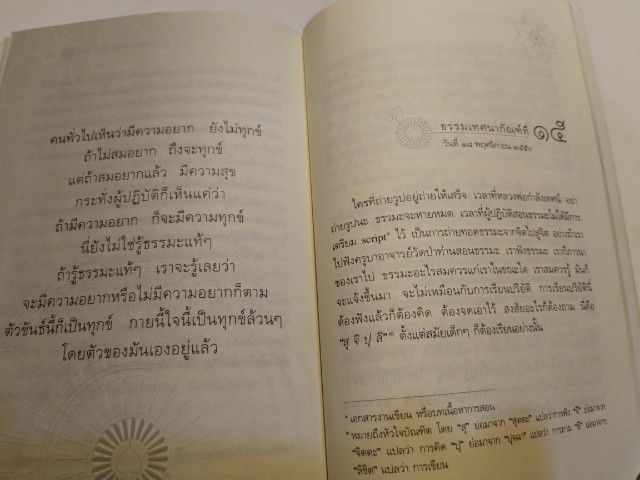 คนทั่วไปเห็นว่ามีความอยาก ยังไม่ทุกข์
ถ้าไม่สมอยาก ถึงจะทุกข์
แต่ถ้าสมอยากแล้ว มีความสุข
กระทั่งผู้ปฏิบัติก็เห็นแค่ว่า
ถ้ามีความอยาก ก็จะมีความทุกข์
นี่ยังไม่ใช่รู้ธรรมะแท้ๆ
ถ้ารู้ธรรมะแท้ๆ เราจะรู้เลยว่า
จะมีความอยากหรือไม่มีความอยากก็ตาม
ตัวขันธ์นี้ก็เป็นทุกข์ กายนี้ใจนี้เป็นทุกข์ล้วนๆ
โดยตัวของมันเองอยู่แล้ว
ธรรมเทศนากัณฑ์ที่ ๑๕
วันที่ ๑๘ พฤศจิกายน ๒๕๕๐
ใครที่ถ่ายรูปอยู่ถ่ายให้เสร็จ เวลาที่หลวงพ่อกำลังเทศน์ อย่า
ถ่ายรูปนะ ธรรมะจะหายหมด เวลาที่ผู้ปฏิบัติสอนธรรมะไม่ได้มีการ
เตรียม script ไว้ เป็นการถ่ายทอดธรรมะจากจิตไปสู่จิต อย่างถ้าเรา
ไปฟังครูบาอาจารย์วัดป่าท่านสอนธรรมะ เราฟังธรรมะ เราก็ภาวนา
ของเราไป ธรรมะอะไรสมควรแก่เราในขณะใด เราสมควรรู้ มันก็
จะแจ้งขึ้นมา จะไม่เหมือนกับการเรียนปริยัติ การเรียนปริยัตินี่
ต้องฟังแล้วก็ต้องคิด ต้องจดเอาไว้ สงสัยอะไรก็ต้องถาม นี่คือ
"สุ จิ ปุ ลิ" ตั้งแต่สมัยเด็กๆ ก็ต้องเรียนอย่างนั้น
เอกสารงานเขียน หรือบทเนื้อหาการสอน
หมายถึงหัวใจบัณฑิต โดย "สุ" ย่อมาจาก "สุตตะ" แปลว่าการฟัง "จิ" ย่อมาจาก
"จิตตะ" แปลว่า การคิด "ปุ" ย่อมาจาก "ปุจฉา" แปลว่า การถาม "ลิ" ย่อมาจาก
"ลิขิต" แปลว่า การเขียน